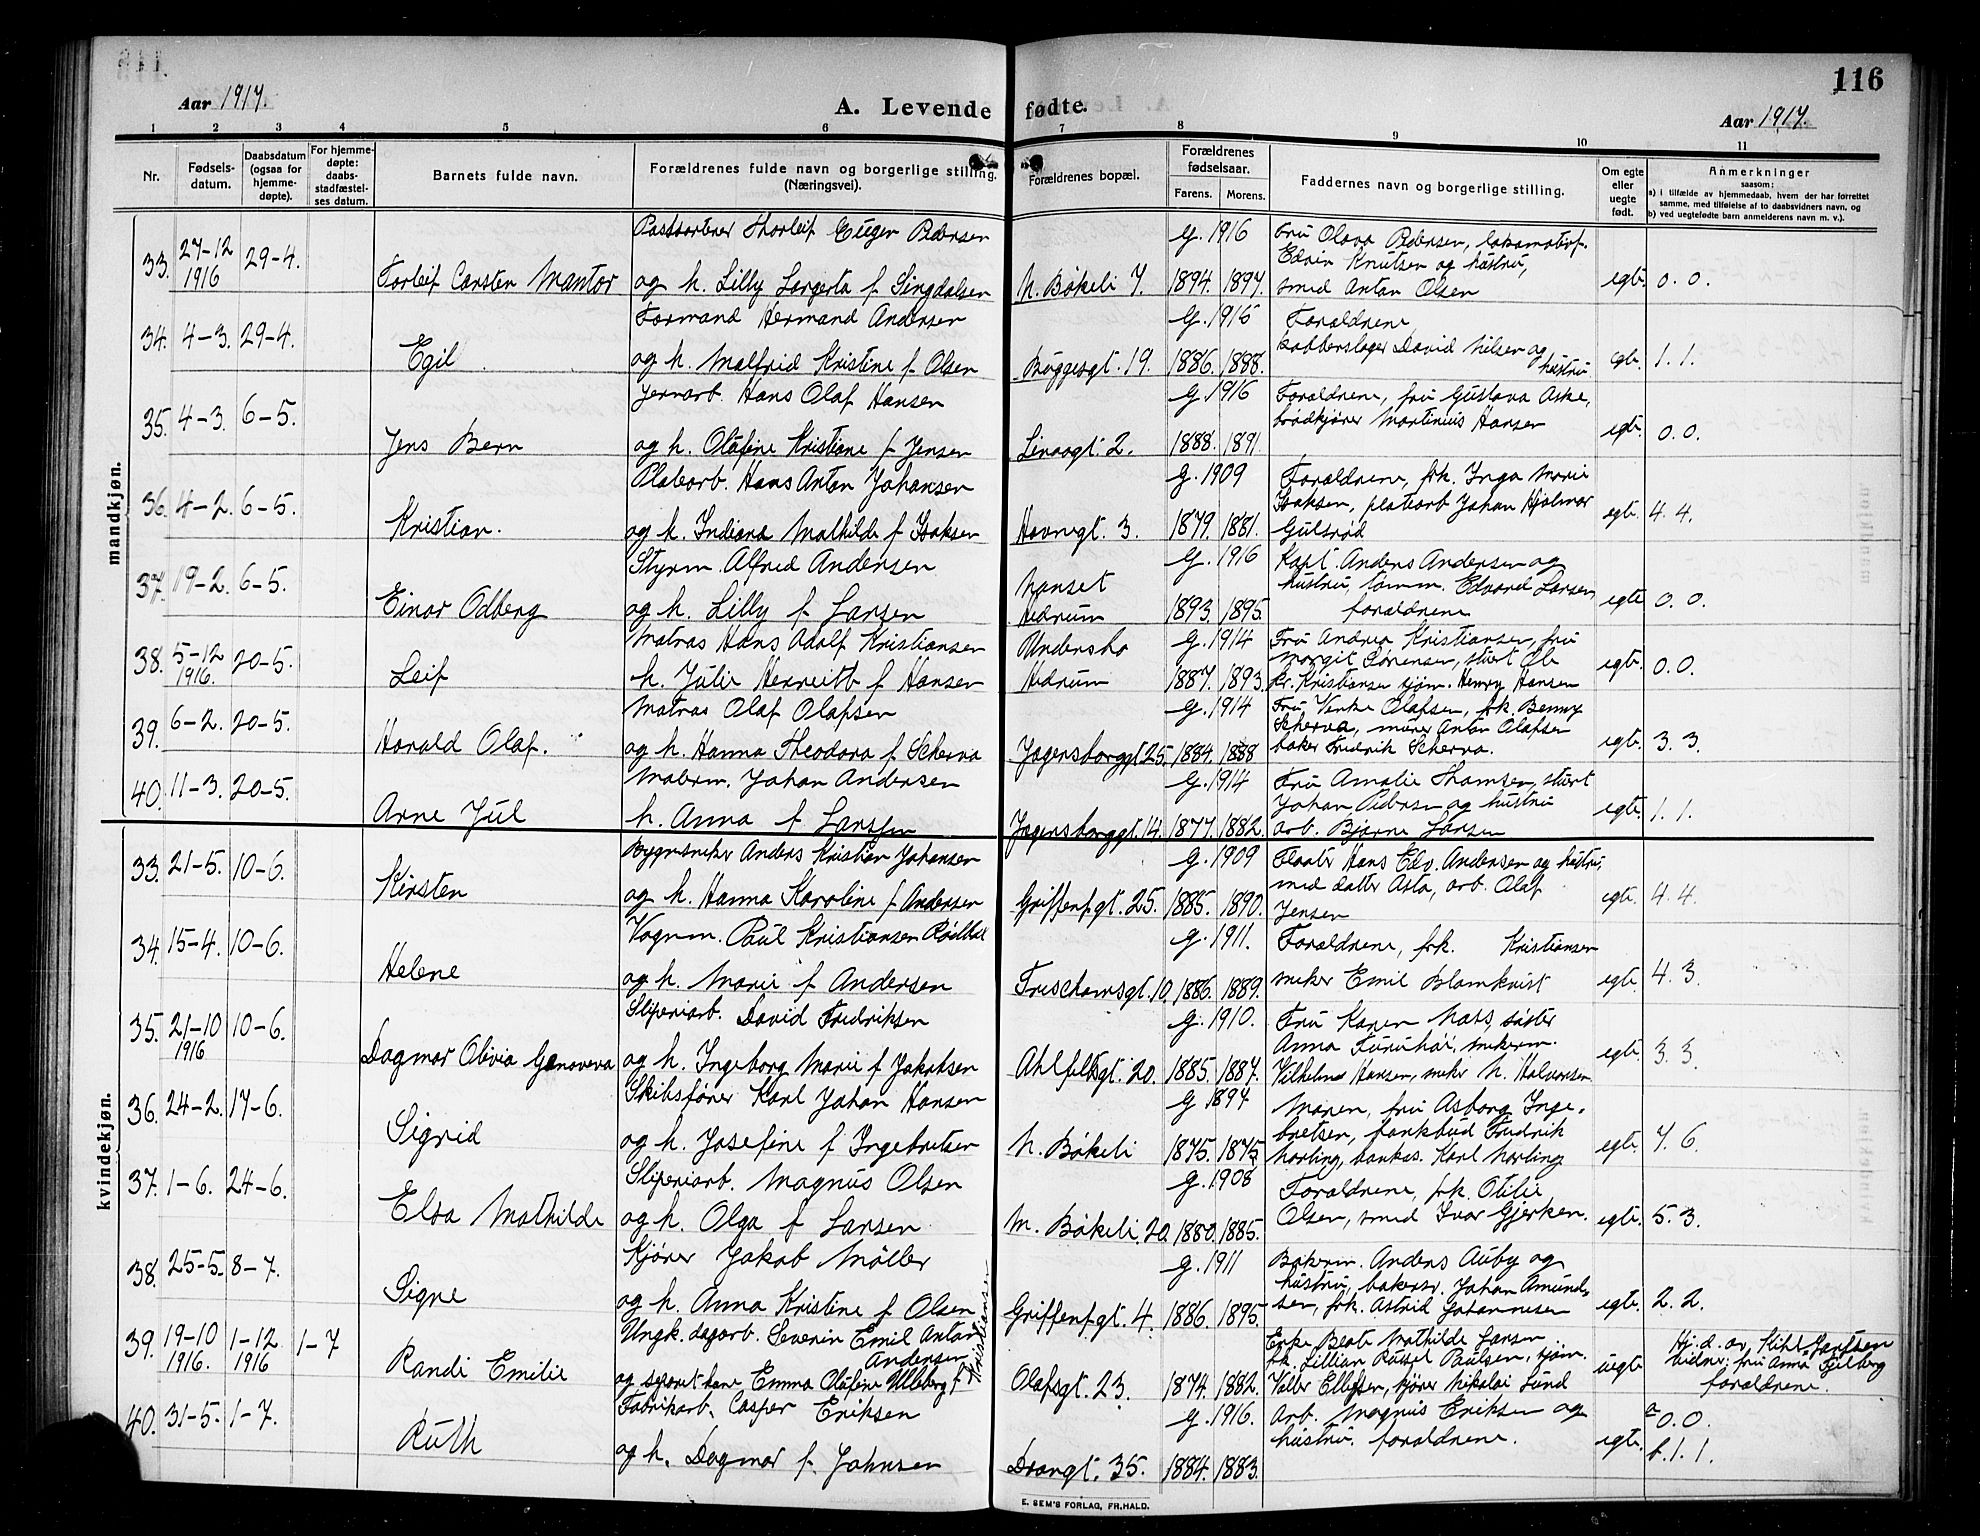 116
Aar 1917.
A. Levende fødte.
Aar 1917.
1 2 3 4 5 6 7 8 9 10 11
Nr.
Fødsels-
datum.
Daabsdatum
(ogsaa for
hjemme-
døpte).
For hjemme-
døpte:
daabs-
stadfæstel-
ses datum.
Barnets fulde navn.
Forældrenes fulde navn og borgerlige stilling.
(Næringsvei).
Forældrenes bopæl.
Forældrenes
fødselsaar.
Farens. Morens.
Faddernes navn og borgerlige stilling.
Om egte
eller
uegte
født.
Anmerkninger
saasom:
a) i tilfælde av hjemmedaab, hvem der har forrettet
samme, med tilføielse af to daabsvidners navn, og
b) ved uegtefødte barn anmelderens navn m. v.).
mandkjøn.
33. 27-12 1916 29-4. Torleif Carsten Mantor
Thorleif Eugen Pedersen
og h. Lilly f.
N. Bøkeli 7. g. 1916 1894. 1897.
Fru Olava Pedersen, lokomotivf.
Edvin Knutsen og hustru,
smed Anton Olsen
egte. 0. 0.
34. 4-3. 29-4. Egil
Formand Hermand Andersen
og h. Malfrid Kristine f. Olsen
Buggesgt. 19. 1886. 1888.
Forældrene,
kobberslager David Nilsen og
hustru
egte. 1. 1.
35. 4-3. 6-5. Jens Bern
Jernarb. Hans Olaf Hansen
og h. Olufine Kristiane f. Jensen
Linaagt. 2. g. 1916 1888. 1891.
Forældrene, fru Gustava Aske,
brødkjører Martinius Hansen
egte. 0. 0.
36. 4-2. 6-5. Kristian.
Platearb. Hans Anton Johansen
og h. Indiana Mathilde f. Isaksen
Havnegt. 3. g. 1909 1879. 1881.
Forældrene, frk. Inga Marie
Isaksen, platearb Johan Hjalmar
Gulsrød
egte. 4. 4.
37. 19-2. 6-5. Einar Odberg
Styrm. Alfred Andersen
og h. Lilly f. Larsen
Nanset
Hedrum g. 1916 1893. 1895.
Kapt. Anders Andersen og
hustru, tømm. Edvard Larsen,
forældrene
egte 0. 0.
38. 5-12 1916. 20-5. Leif
Matros Hans Adolf Kristiansen
h. Julie f. Hansen
Hedrum g. 1914 1887. 1893.
Fru Andrea Kristiansen, fru
Margit Sørensen, stuert Ole
Kr. Kristiansen sjøm. Henry Hansen
egte. 0. 0.
39. 6-2. 20-5. Harald Olaf.
Matros Olaf Olafsen
og h. Hanna Theodora f. Scherva
Jegersborggt 25. g. 1914 1884. 1888
Fru Olafsen, frk. Benny
Scherva, murer Anton Olafsen
baker Fredrik Scherva.
egte. 3. 3.
40. 11-3. 20-5. Arne Jul
Malerm. Johan Andersen
h. Anna f. Larssen
Jegersborggt. 14. g. 1914 1877. 1882.
Fru Amalie Thomsen, stuert
Johan Pedersen og hustru
arb. Bjarne Larsen
egte. 1. 1.
kvindekjøn.
33. 21-5. 10-6. Kirsten
Bygnsneker Anders Kristian Johansen
og h. Hanna Karoline f. Andersen
Griffenf.gt. 25. g. 1909 1885. 1890.
Fløater Hans Edv. Andersen og hustru,
med datter Asta, arb. Olaf
Jensen
egte. 4. 4.
34. 15-4. 10-6. Helene
Vognm. Paul Kristiansen
og h. Marie f. Andersen
g. 1911. 1886. 1889.
Forældrene, frk. Kristiansen
sneker Emil Blomkvist
egte. 4. 3.
35. 21-10 1916 10-6. Dagmar Olivia Genoveva
Sliperiarb. David Fredriksen
og h. Ingeborg Marie f. Jakobsen
Ahlfeldtsgt. 20. g. 1910. 1885. 1887.
Fru Karen Mats, søster
Anna Furuhøi, snekerm.
Vilhelm Hansen, sneker N. Halvorsen
egte. 3. 3.
36. 24-2. 17-6. Sigrid
Skibsfører Karl Johan Hansen
og h. Josefine f. Ingebretsen
N. Bøkeli g 1897 1875. 1875
Moren, fru Asborg Inge-
bretsen, bankbud Fredrik
Norling, bankas. Karl Norling
egte. 7. 6.
37. 1-6. 24-6. Elsa Mathilde
Sliperiarb. Magnus Olsen
og h. Olga f. Larsen
N. Bøkeli. 20. g. 1908 1880. 1885.
Forældrene, frk. Otilie
Olsen, smed Ivar Gjerken.
egte. 5. 3.
38. 25-5. 8-7. Signe
Kjører Jakob Møller
og h. Anna Kristine f. Olsen
Griffenf.gt. 4. g. 1911 1886. 1895.
Bakerm. Anders Auby og
hustru, bakersv. Johan Amund-
sen, frk. Astrid Johannesen
egte. 2. 2.
39. 19-10 1916. 1-12 1916 1-7 Randi Emilie
Ungk. dagarb. Severin Emil Anton
Andersen
og separert kone Emma Olufine Ulleberg f.
Kristiansen
Olafsgt. 23. 1874. 1882.
Enke Beate Mathilde Larsen.
frk. Lillian Russel Paulsen, sjøm.
Valter Ellefsen, kjører Nikolai Lund
uegte
Hj. d. av
vidner: fru Anna Fjelberg
forældrene.
40. 31-5. 1-7. Ruth
Fabrikarb. Casper Eriksen
og h. Dagmar f. Johnsen
Dronngt. 35. g. 1916. 1884. 1883.
Arb. Magnus Eriksen og
hustru. forældrene.
egte. a 0. 0.
b. 1. 1.
E. SEM'S FORLAG, FR.HALD.